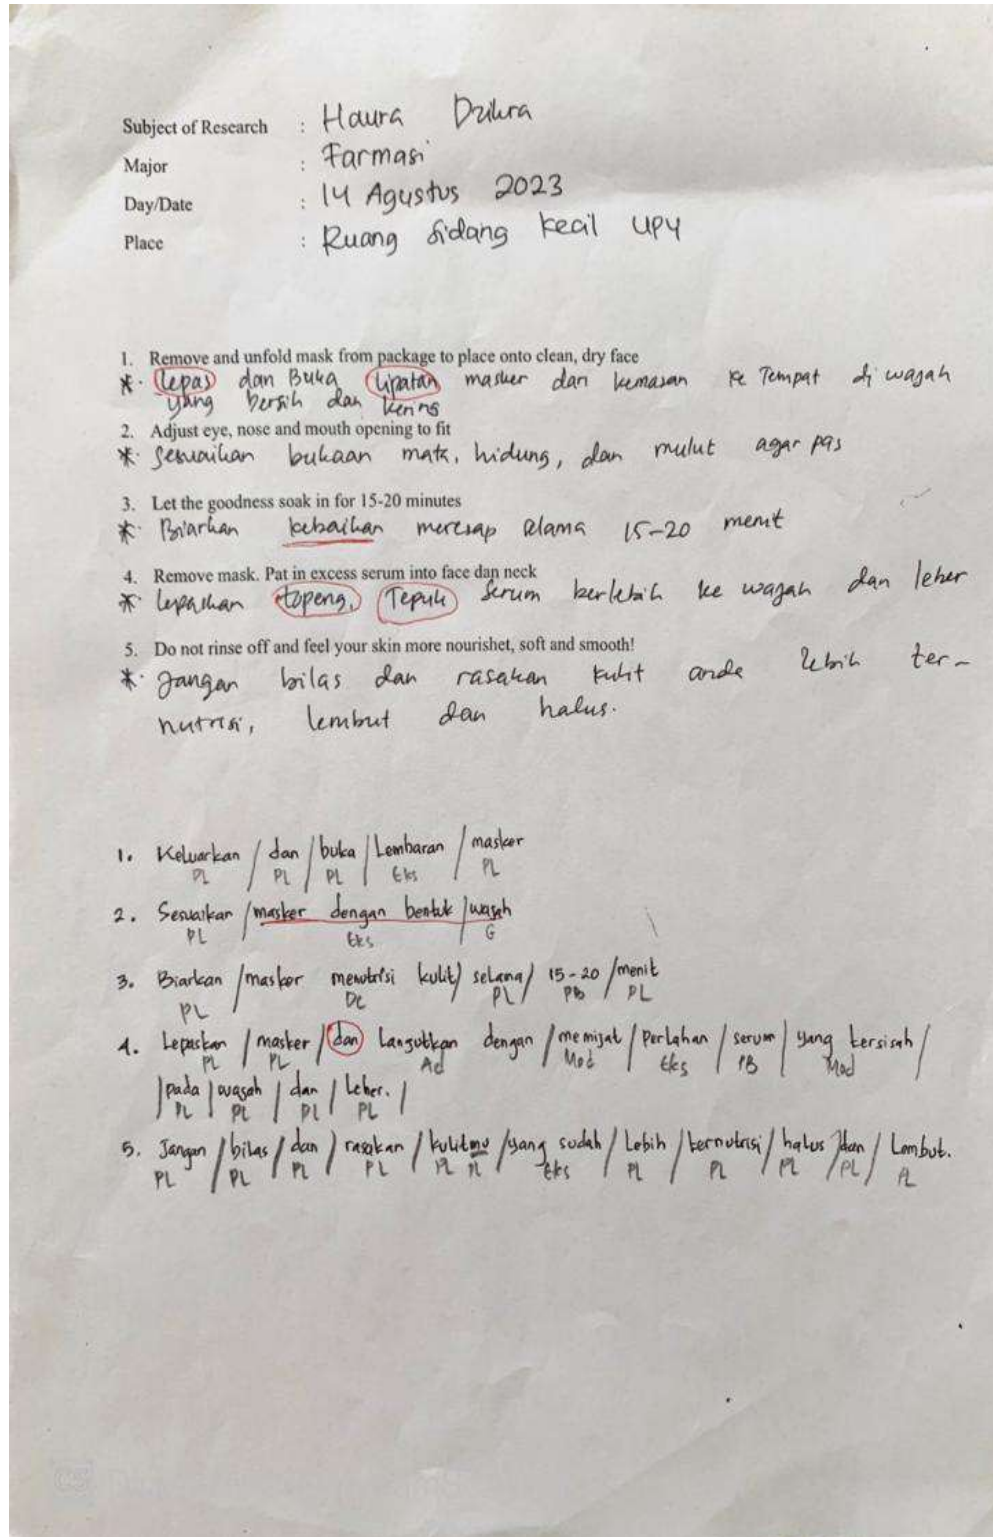 Subject of Research : Haura Dzikra
Major : Farmasi
Day/Date : 14 Agustus 2023
Place : Ruang Sidang kecil UPY
1. Remove and unfold mask from package to place onto clean, dry face
* Lepas dan Buka lipatan masker dari kemasan ke Tempat di wajah
yang bersih dan kering
2. Adjust eye, nose and mouth opening to fit
* Sesuaikan bukaan mata, hidung, dan mulut agar pas
3. Let the goodness soak in for 15-20 minutes
* Biarkan kebaikan meresap selama 15-20 menit
4. Remove mask. Pat in excess serum into face dan neck
* Lepaskan topeng, Tepuk serum berlebih ke wajah dan leher
5. Do not rinse off and feel your skin more nourishet, soft and smooth!
* Jangan bilas dan rasakan kulit anda lebih ter-
nutrisi, lembut dan halus.
1. Keluarkan / dan / buka / Lembaran / masker
PL PL PL Eks PL
2. Sesuaikan / masker dengan bentuk / wajah
PL Eks G
3. Biarkan / masker menutrisi kulit / selama / 15-20 / menit
PL DC PL PB PL
4. Lepaskan / masker / dan Lanjutkan dengan / memijat / Perlahan / serum / yang tersisah /
PL PL Ad Mod Eks PB Mod
/ pada / wajah / dan / Leher. /
PL PL PL PL
5. Jangan / bilas / dan / rasakan / kulitmu / yang sudah / Lebih / ternutrisi / halus / dan / Lembut.
PL PL PL PL PL PL Eks PL PL PL PL PL